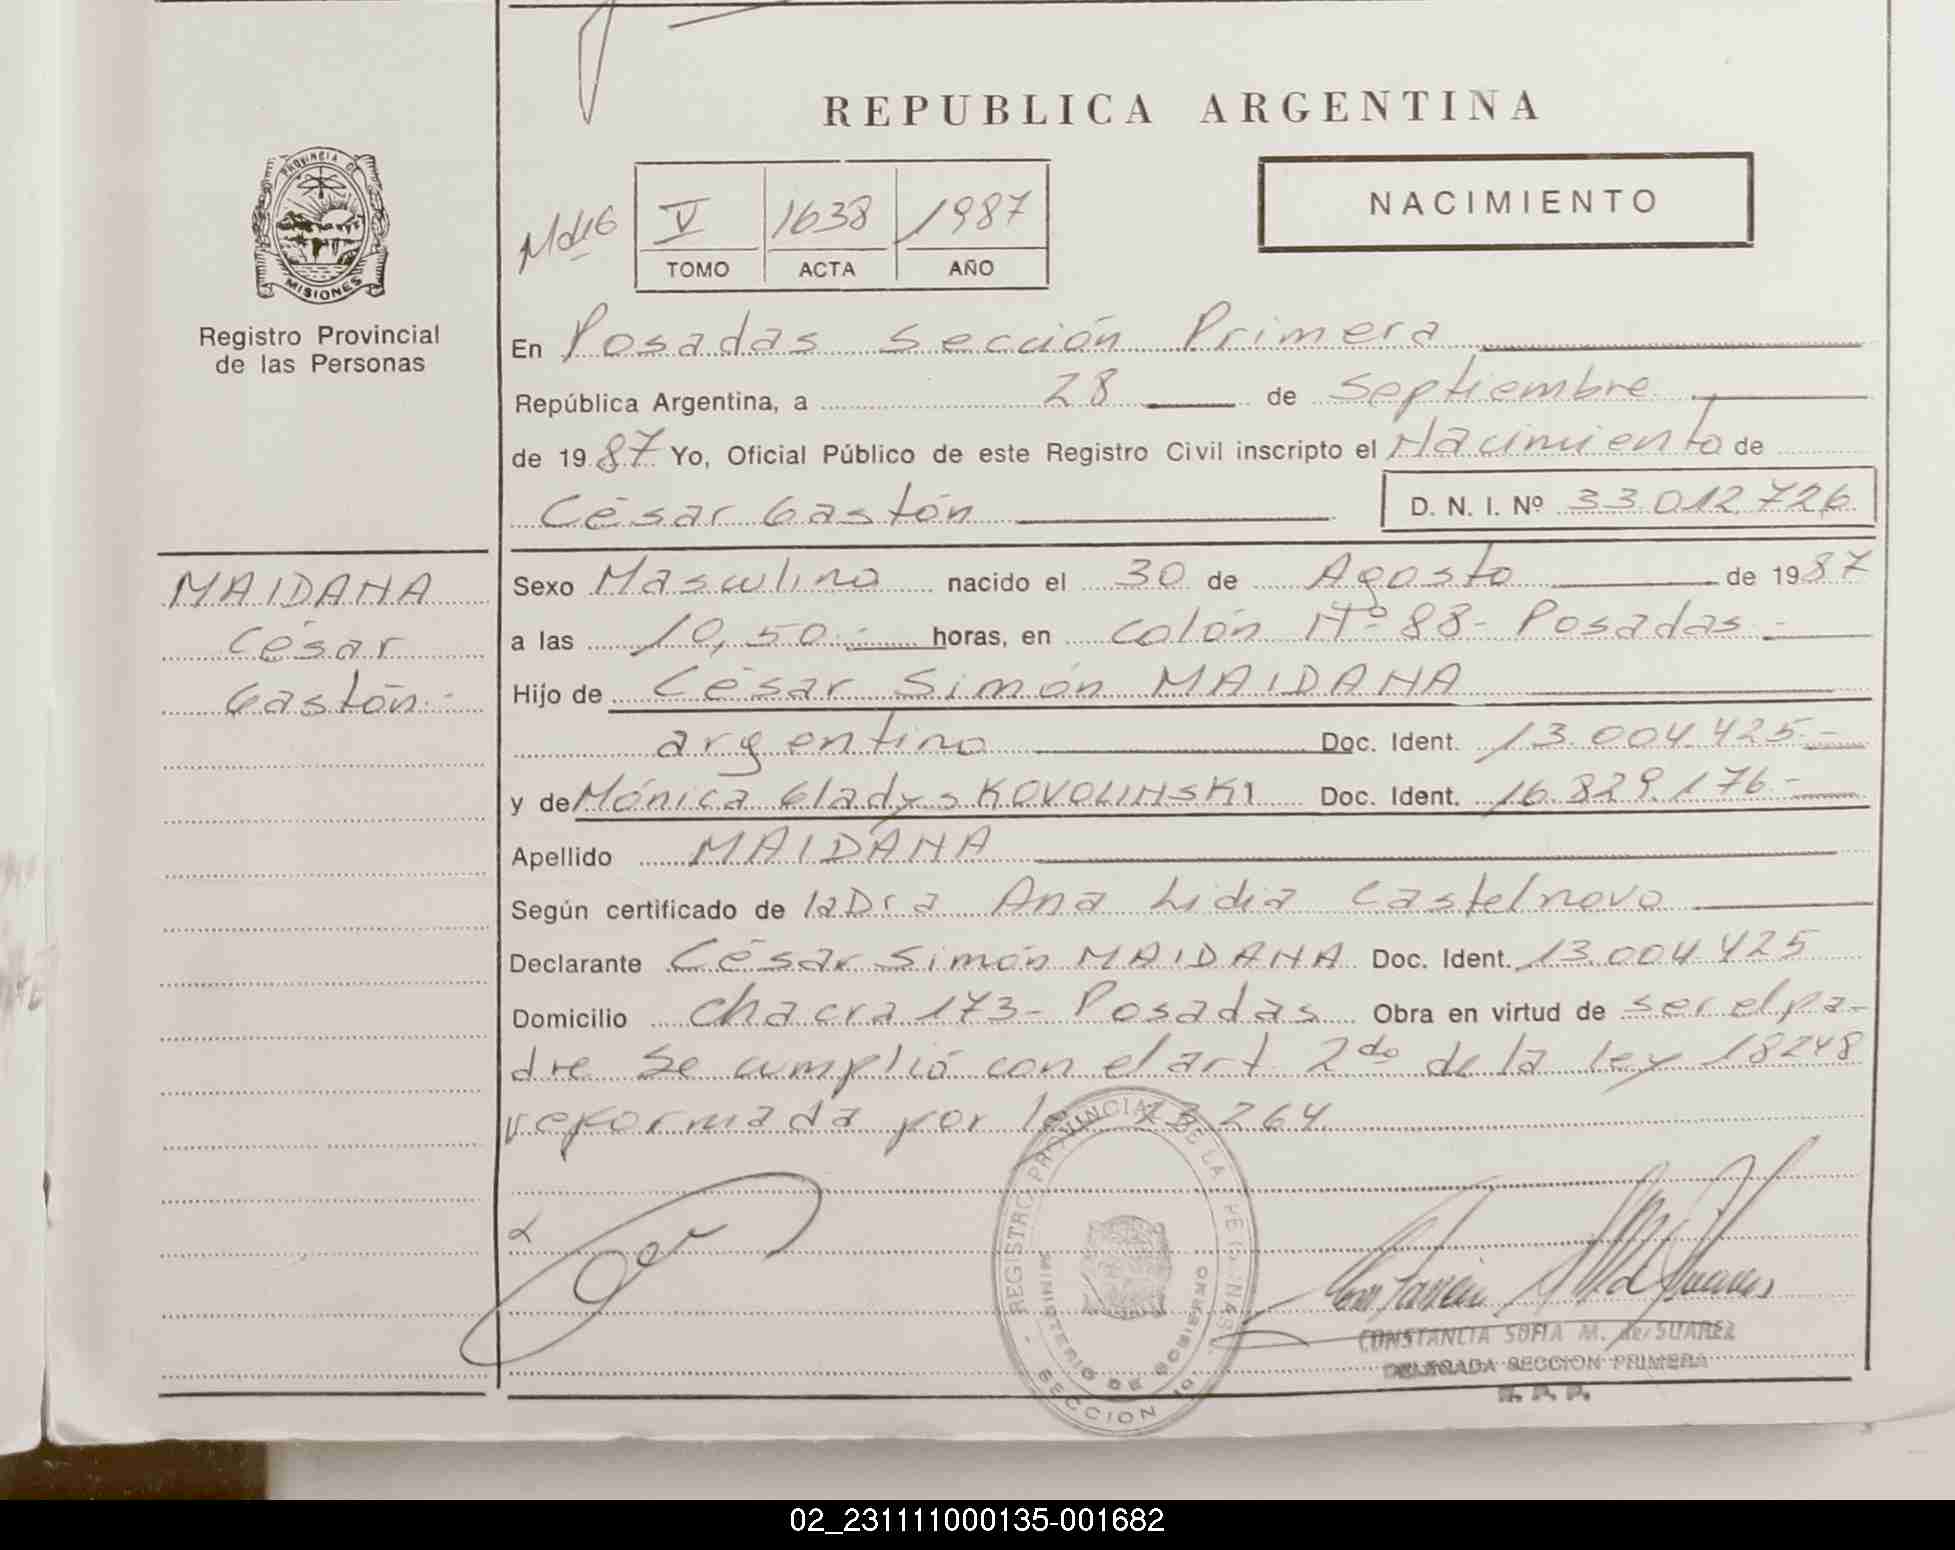 REPUBLICA ARGENTINA
PROVINCIA DE
MISIONES
Registro Provincial
de las Personas
NACIMIENTO
V 1638 1987
TOMO ACTA AÑO
En Posadas Sección Primera
República Argentina, a 28 de Septiembre
de 1987 Yo, Oficial Público de este Registro Civil inscripto el Nacimiento de
César Gastón D. N. I. Nº 33.012.726
MAIDANA
César
Gastón.-
Sexo Masculino nacido el 30 de Agosto de 1987
a las 10,50.- horas, en Colón Nº 88- Posadas.-
Hijo de César Simón MAIDANA
argentino Doc. Ident. 13.004.425.-
y de Mónica Gladys KOVOLINSKI Doc. Ident. 16.829.176.-
Apellido MAIDANA
Según certificado de la Dra Ana Lidia Castelnovo
Declarante César Simón MAIDANA Doc. Ident. 13.004.425
Domicilio Chacra 173- Posadas Obra en virtud de ser el pa-
dre Se cumplió con el art. 2do de la ley 18248
reformada por la 23.264.
REGISTRO PROVINCIAL DE LAS PERSONAS
MINISTERIO DE GOBIERNO
SECCION 1º
CONSTANCIA SOFIA M. de SUAREZ
DELEGADA SECCION PRIMERA
R. P. P.
02_231111000135-001682